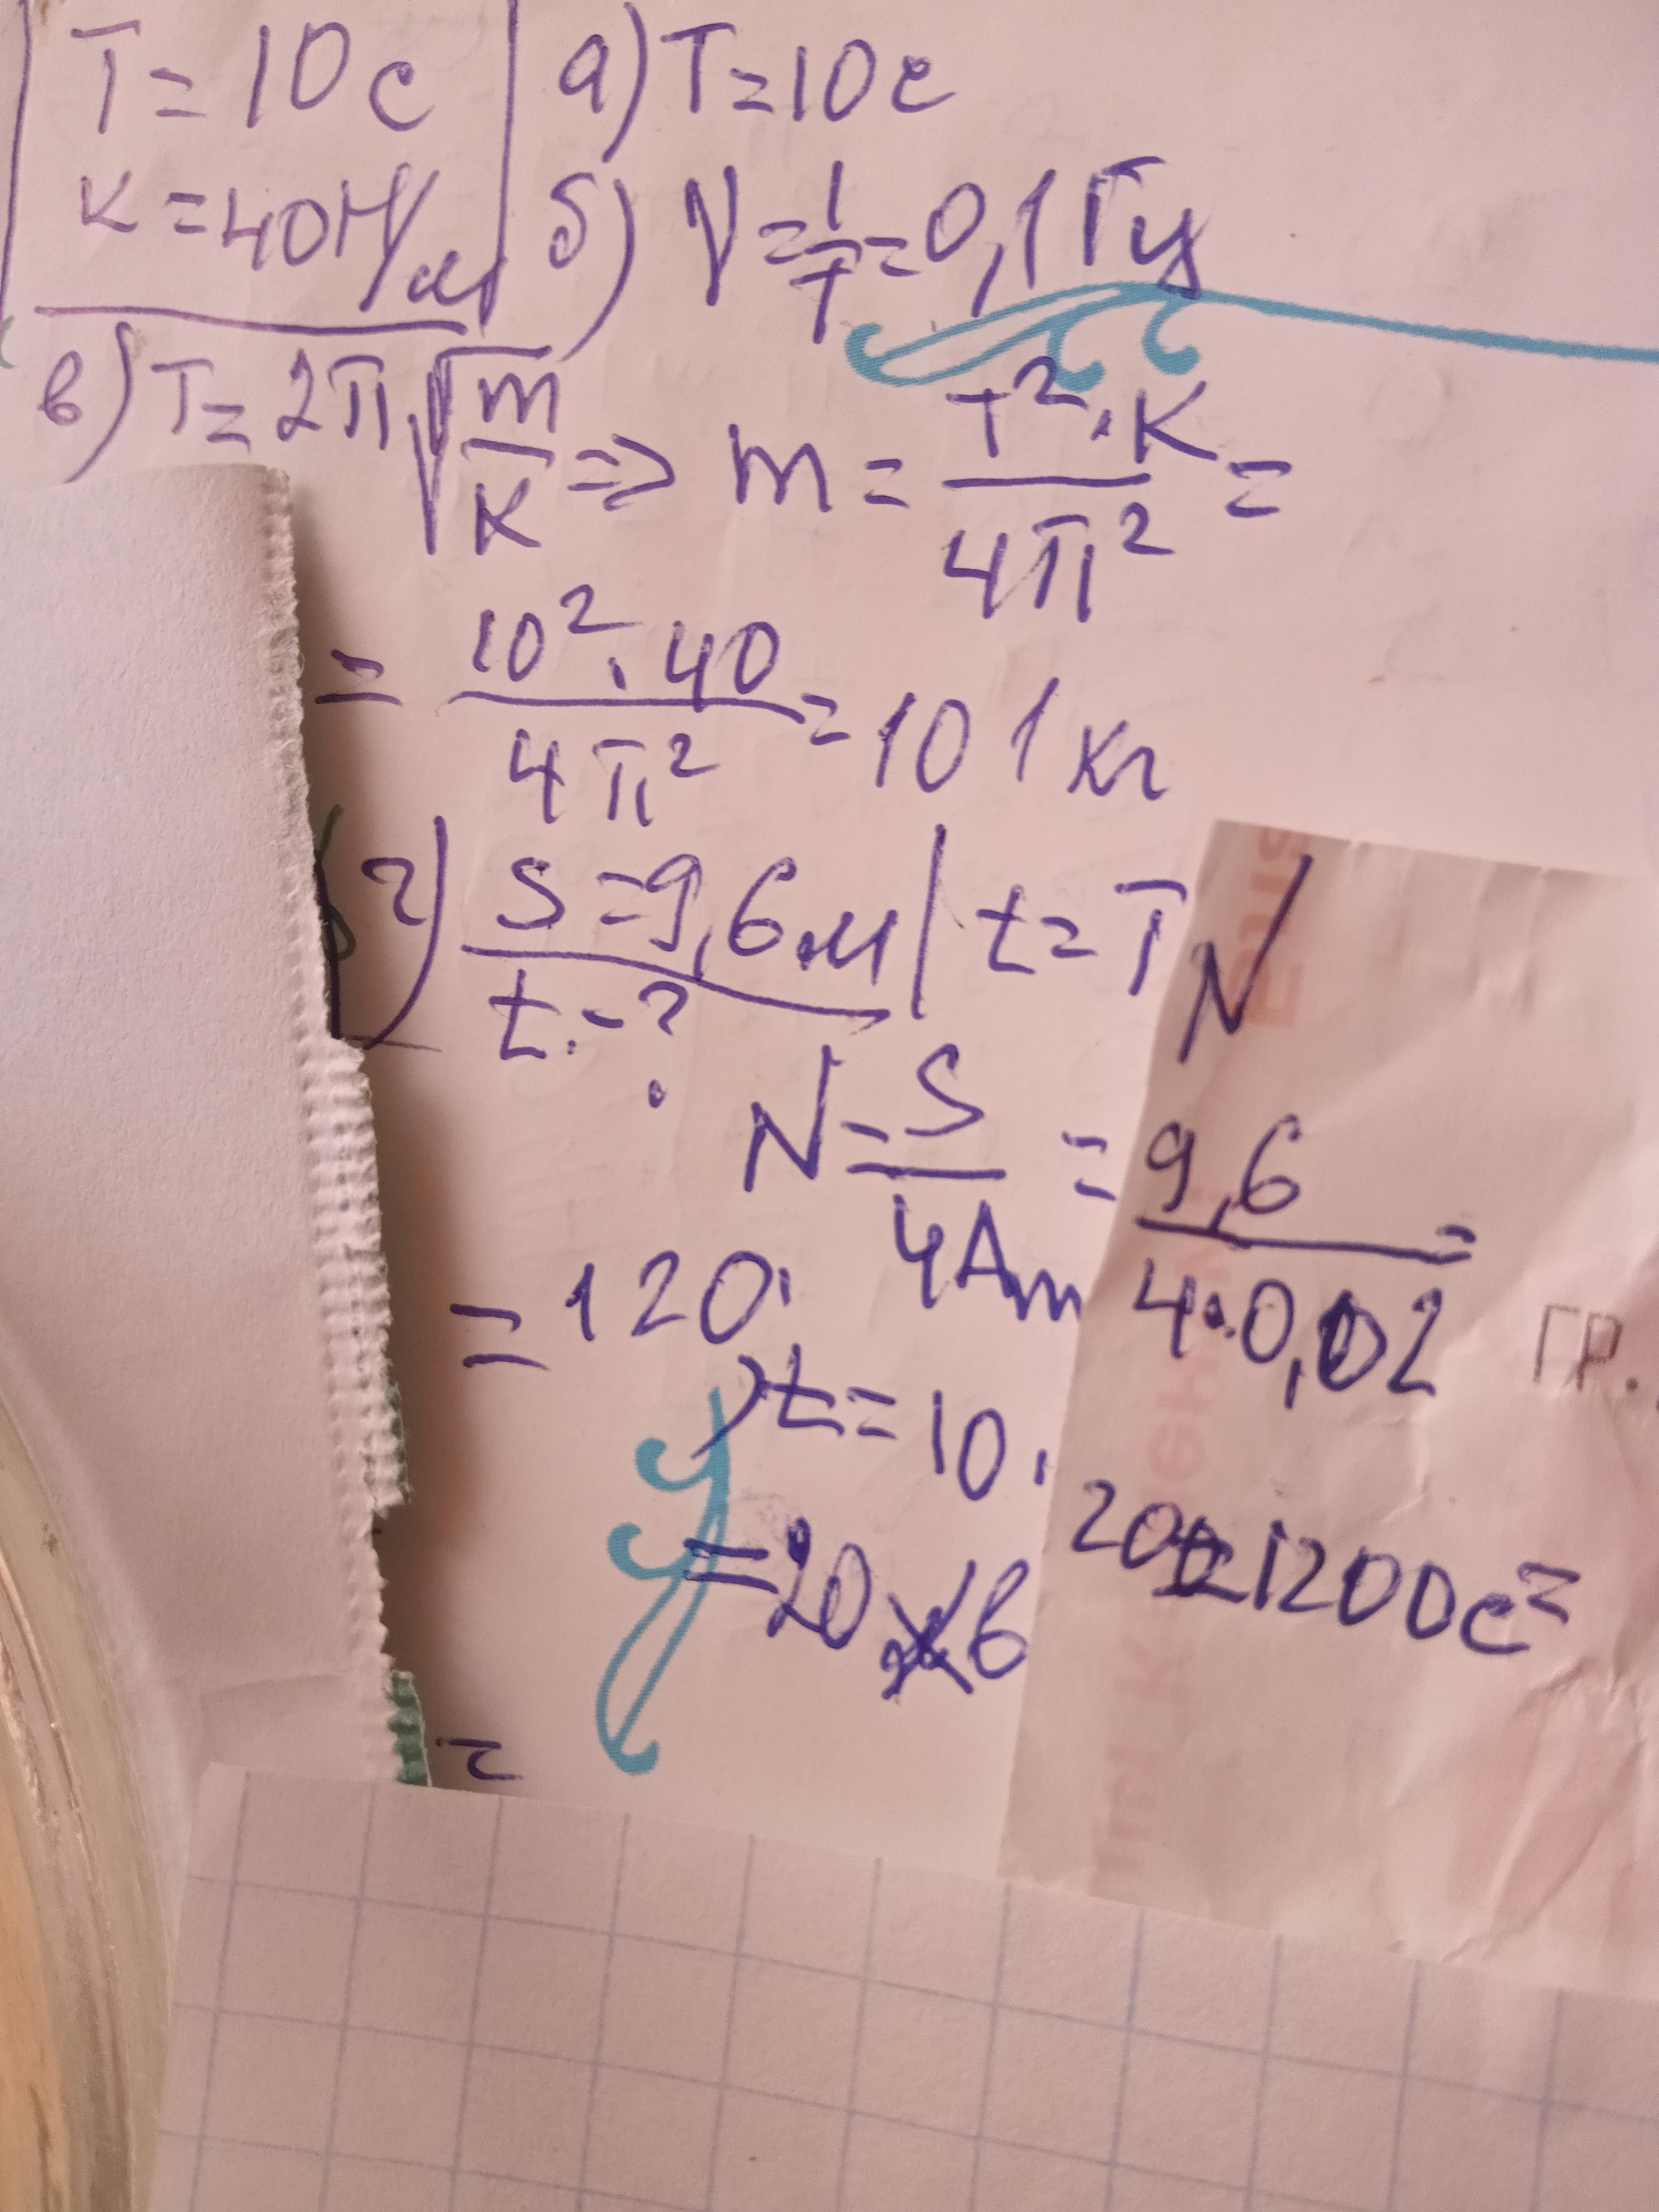 T = 10 c | а) T = 10 c
K = 40 Н/м | б) ν = 1/T = 0,1 Гц
в) T = 2π √(m/K) => m = (T² · K)/(4π²) =
= (10² · 40)/(4π²) = 101 кг
г) S = 9,6 м | t = T N
t - ?
N = S/(4Am) = 9,6/(4 · 0,02) =
= 120;
t = 10 ·
1200 c =
= 20
ГР.